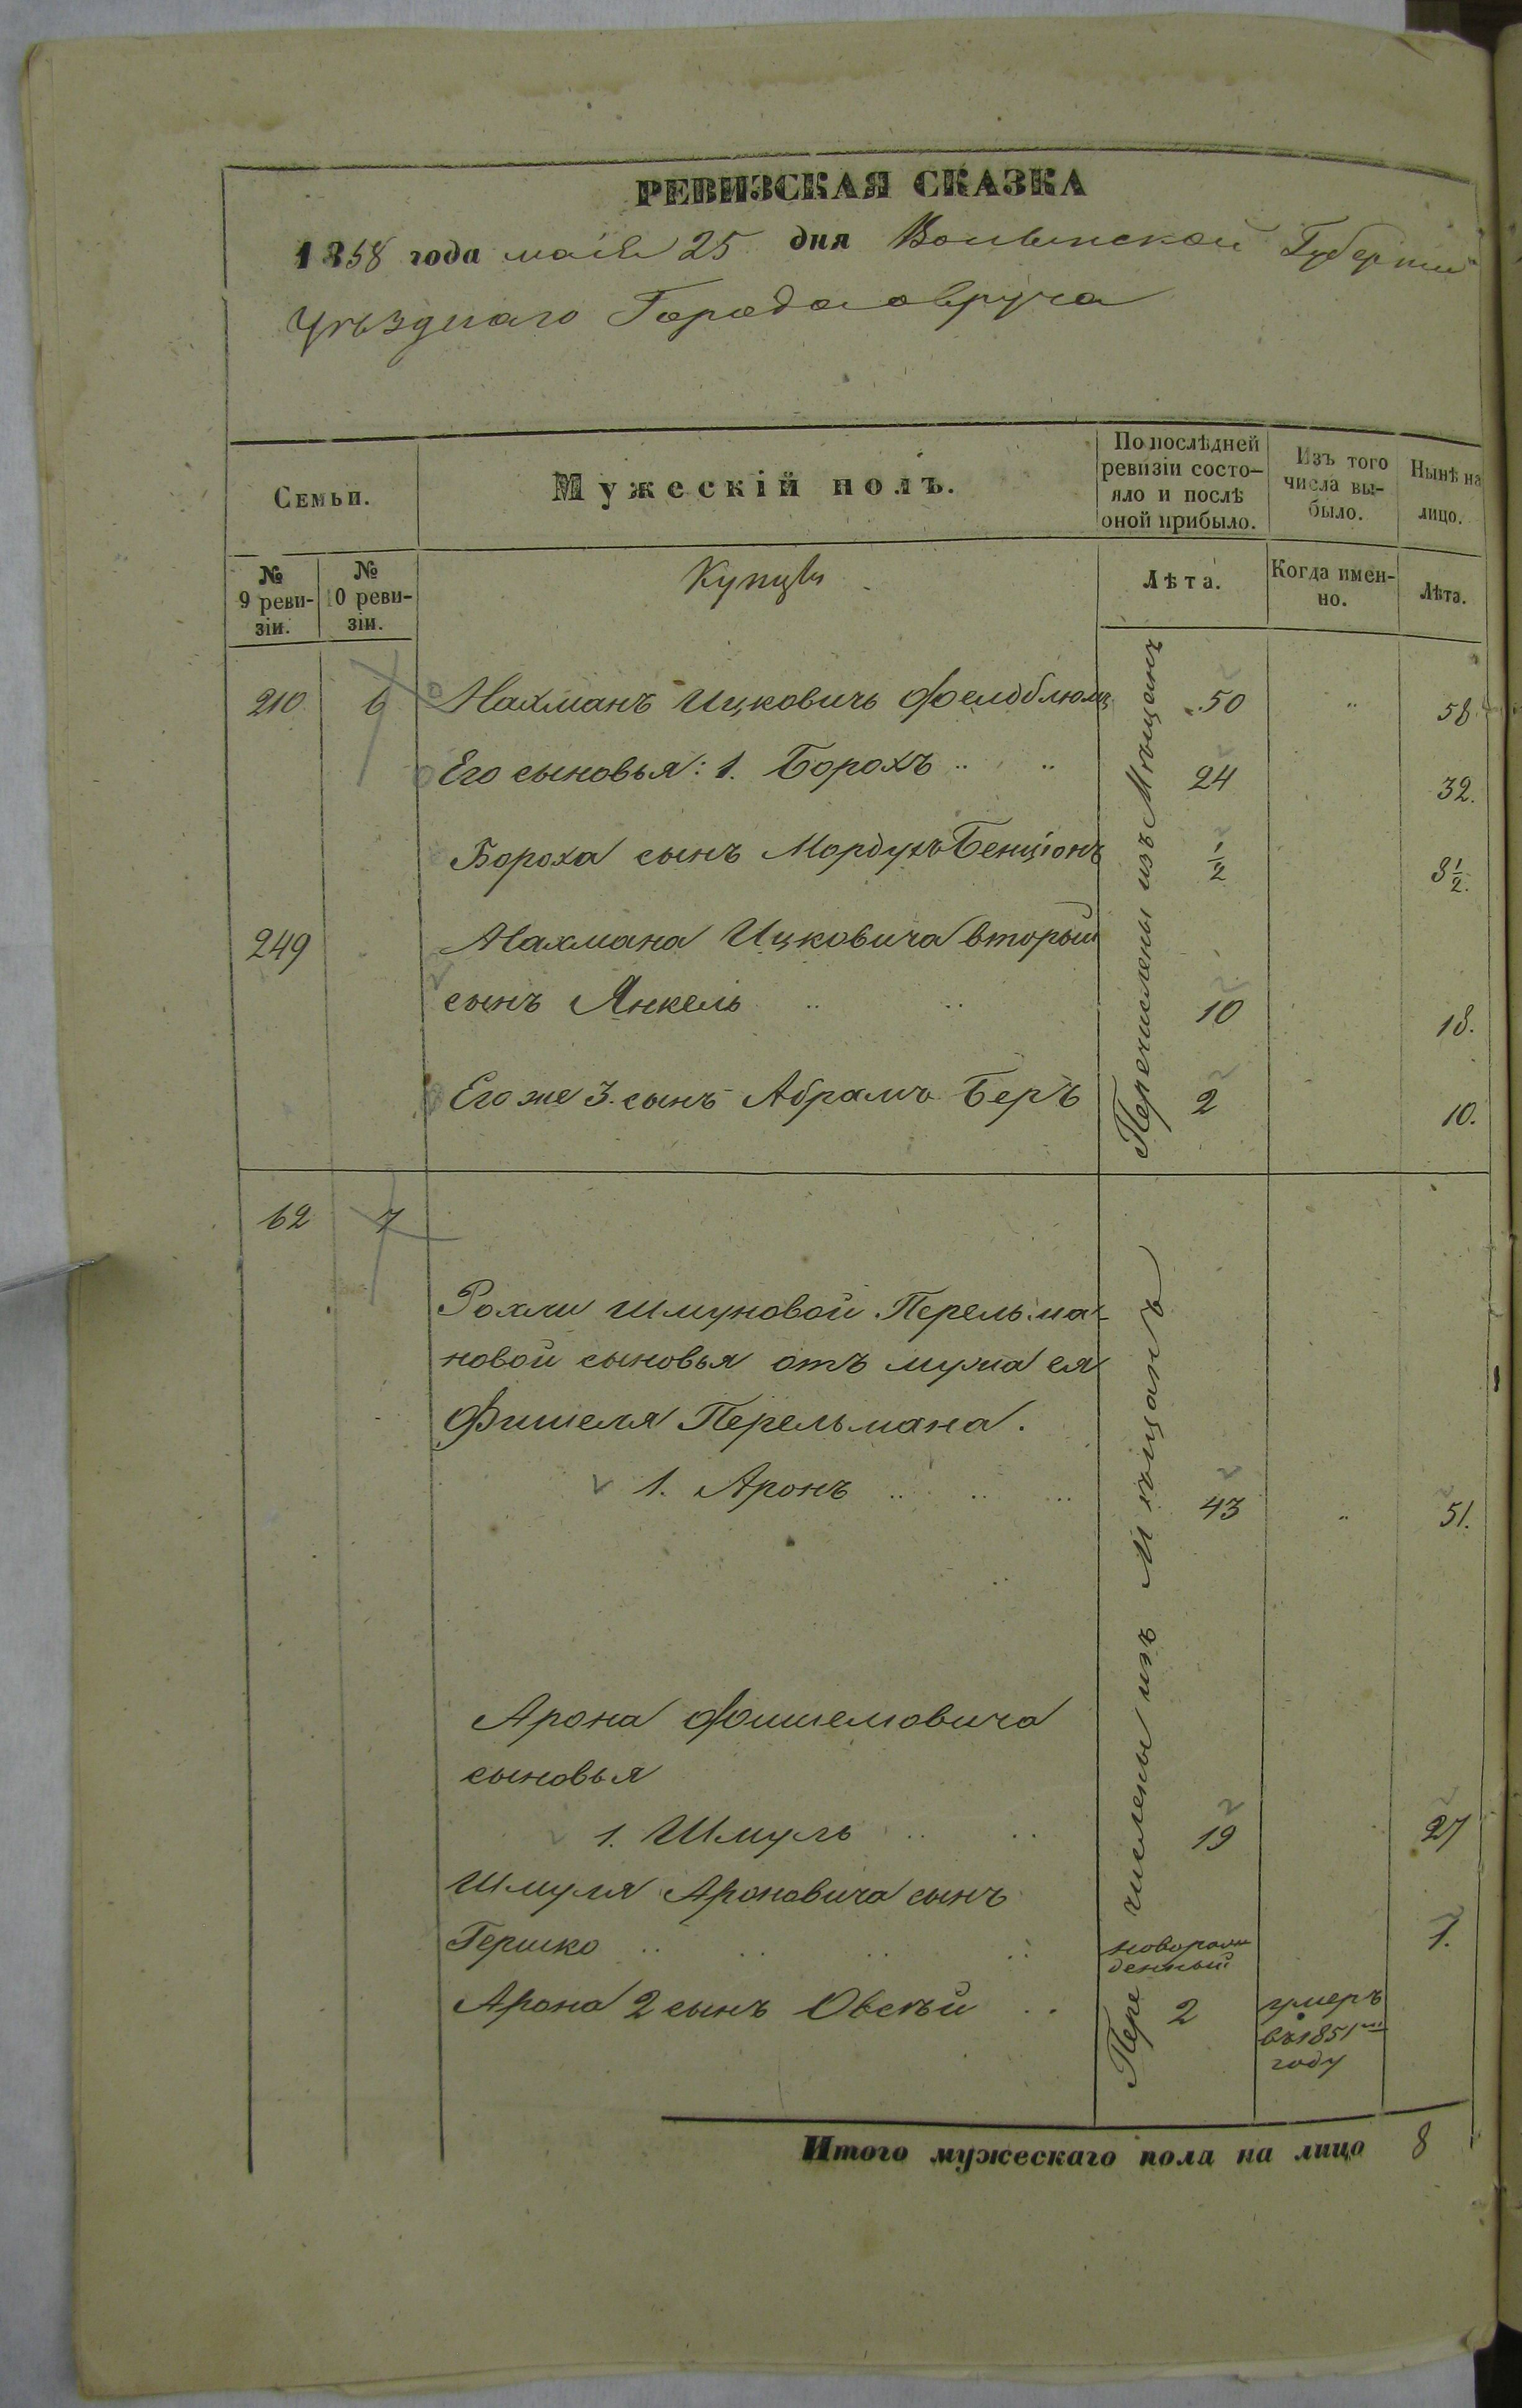 РЕВИЗСКАЯ СКАЗКА
1858 года мая 25 дня Волынской Губерніи
Уѣзднаго Города овруча
Семьи.
Мужескій полъ.
По послѣдней ревизіи состояло и послѣ оной прибыло.
Изъ того числа выбыло.
Нынѣ на лицо.
№ 9 ревизіи.
№ 10 ревизіи.
Купцы
Лѣта.
Когда именно.
Лѣта.
Перечислены изъ Мѣщанъ
210 6 Нахманъ Ицковичъ Фелдблюмъ 50 " 58
Его сыновья: 1. Борохъ 24 " 32.
Бороха сынъ МордухъБенціонъ 1/2 8 1/2.
249 Нахмана Ицковича вторый
сынъ Янкель 10 18.
Его же 3. сынъ Абрамъ Беръ 2 10.
62 7
Перечислены изъ Мѣщанъ
Рохли Шмуловой Перельма-
новой сыновья отъ мужа ея
Фишеля Перельмана.
1. Аронъ 43 " 51.
Арона Фишелovича
сыновья
1. Шмуль 19 27
Шмуля Ароновича сынъ
Гершко новорож
денный 1.
Арона 2 сынъ Овсѣй 2 умеръ
въ 1851мъ
году
Итого мужескаго пола на лицо 8